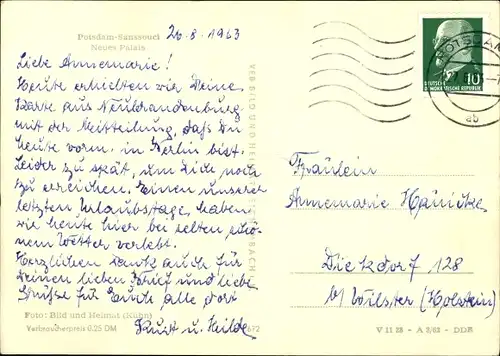 Potsdam-Sanssouci
Neues Palais
20.8.1963
Liebe Annemarie!
Heute erhielten wir Deine
Karte aus Neubrandenburg
mit der Mitteilung, daß Du
heute vorm. in Berlin bist.
Leider zu spät, um Dich noch
zu erreichen. Einen unserer
letzten Urlaubstage haben
wir heute hier bei selten schö-
nem Wetter verlebt.
Herzlichen Dank auch für
Deinen lieben Brief und liebe
Grüße für Euch alle dort
Kurt u. Hilde
Foto: Bild und Heimat (Kühn)
Verbraucherpreis 0,25 DM
VEB BILD UND HEIMAT
DEUTSCHE
DEMOKRATISCHE REPUBLIK
10
POTSDAM
ab
Fräulein
Annemarie Hänicke
Dieckdorf 128
b/ Wilster (Holstein)
V 11 28 - A 2/63 - DDR